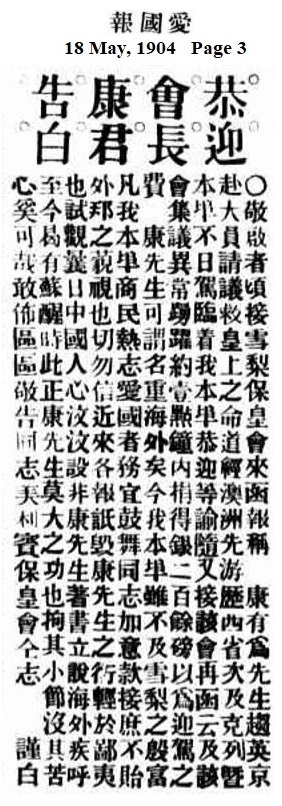 愛國報
18 May, 1904 Page 3
恭迎
會長
康君
告白
〇敬啟者頃接雪梨保皇會來函報稱　康有爲先生趨英京
赴大員請議救皇上之命道經澳洲先游歷西省次及克列暨
本埠不日駕臨着我本埠恭迎等諭隨又接該會再函云及該
會集議異常踴躍約壹點鐘內捐得銀二百餘磅以爲迎駕之
費　康先生可謂名重海外矣今我本埠雖不及雪梨之殷富
凡我本埠商民熱志愛國者務宜鼓舞同志加意款接庶不貽
外邦之藐視也切勿信近來各報詆毀康先生之行輕於鄙夷
也試觀曩日中國人心汶汶設非康先生著書立說海外疾呼
至今曷有蘇醒時此正康先生莫大之功也拘其小節沒其苦
心奚可哉敢佈區區敬告同志美利賓保皇會仝志　謹白